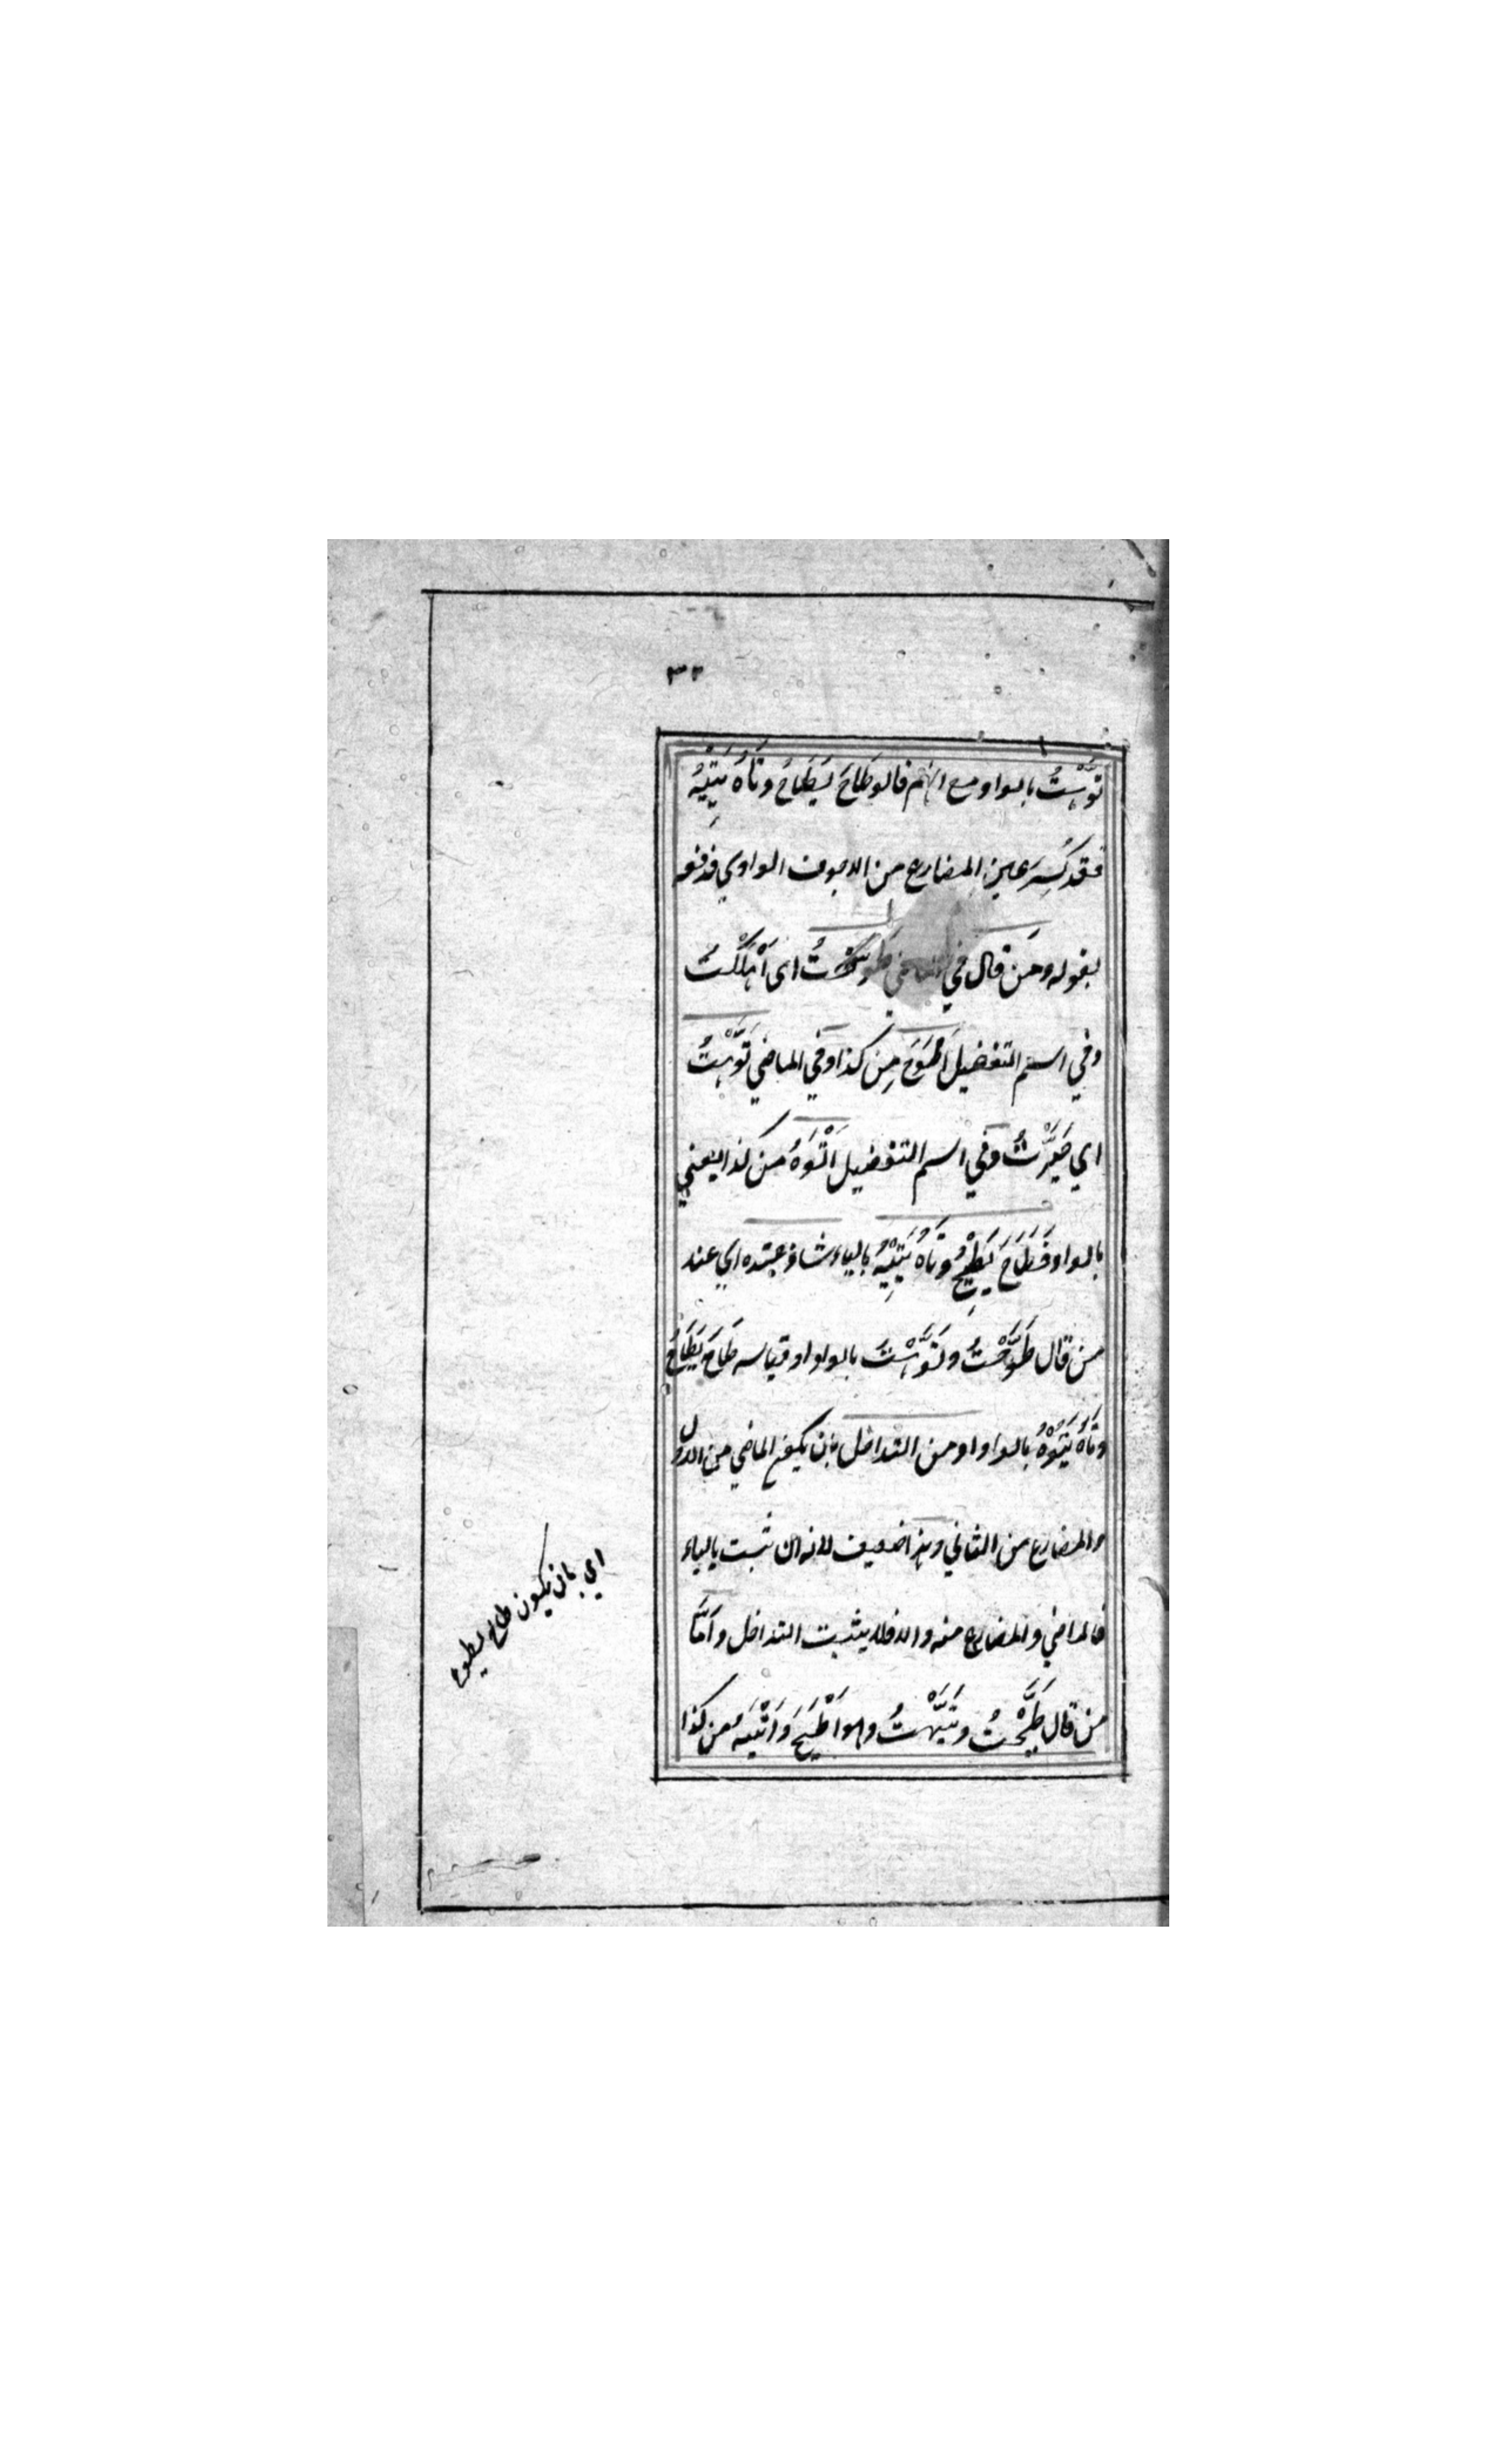 ٣٢
تَوَّهْتُ بالواو مع انهم قالو طَاحَ يَطَاحُ وتَاهُ يَتِيْهُ
فقد كُسِرَ عين المضارع من الاجوف الواوي فدفعه
بقوله ومَن قال في الماضي طَوَّحْتُ اى اَهْلَكْتُ
وفي اسم التفضيل اَطْوَحَ مِن كذا وفي الماضي تَوَّهْتُ
اي حَيَّرْتُ وفي اسم التفضيل اَتْوَهُ من كذا يعني
بالواو فَطَاحَ يَطِيْحُ وتَاهُ يَتِيْهُ بالياء شاذ عنده اي عند
من قال طَوَّحْتُ وتَوَّهْتُ بالواو او قياسه طَاحَ يَطَاحُ
وتَاهُ يَتُوْهُ بالواو او من التداخل بان يكون الماضي من الاول
والمضارع من الثاني وهذا ضعيف لانه ان ثبت بالياء
فالماضي والمضارع منه والا فلا يثبت التداخل واَمَّا
من قال طَيَّحْتُ وتَيَّهْتُ وهو اَطْيَحَ واَتْيَهُ من كذا
اي بان يكون طاح يطوح